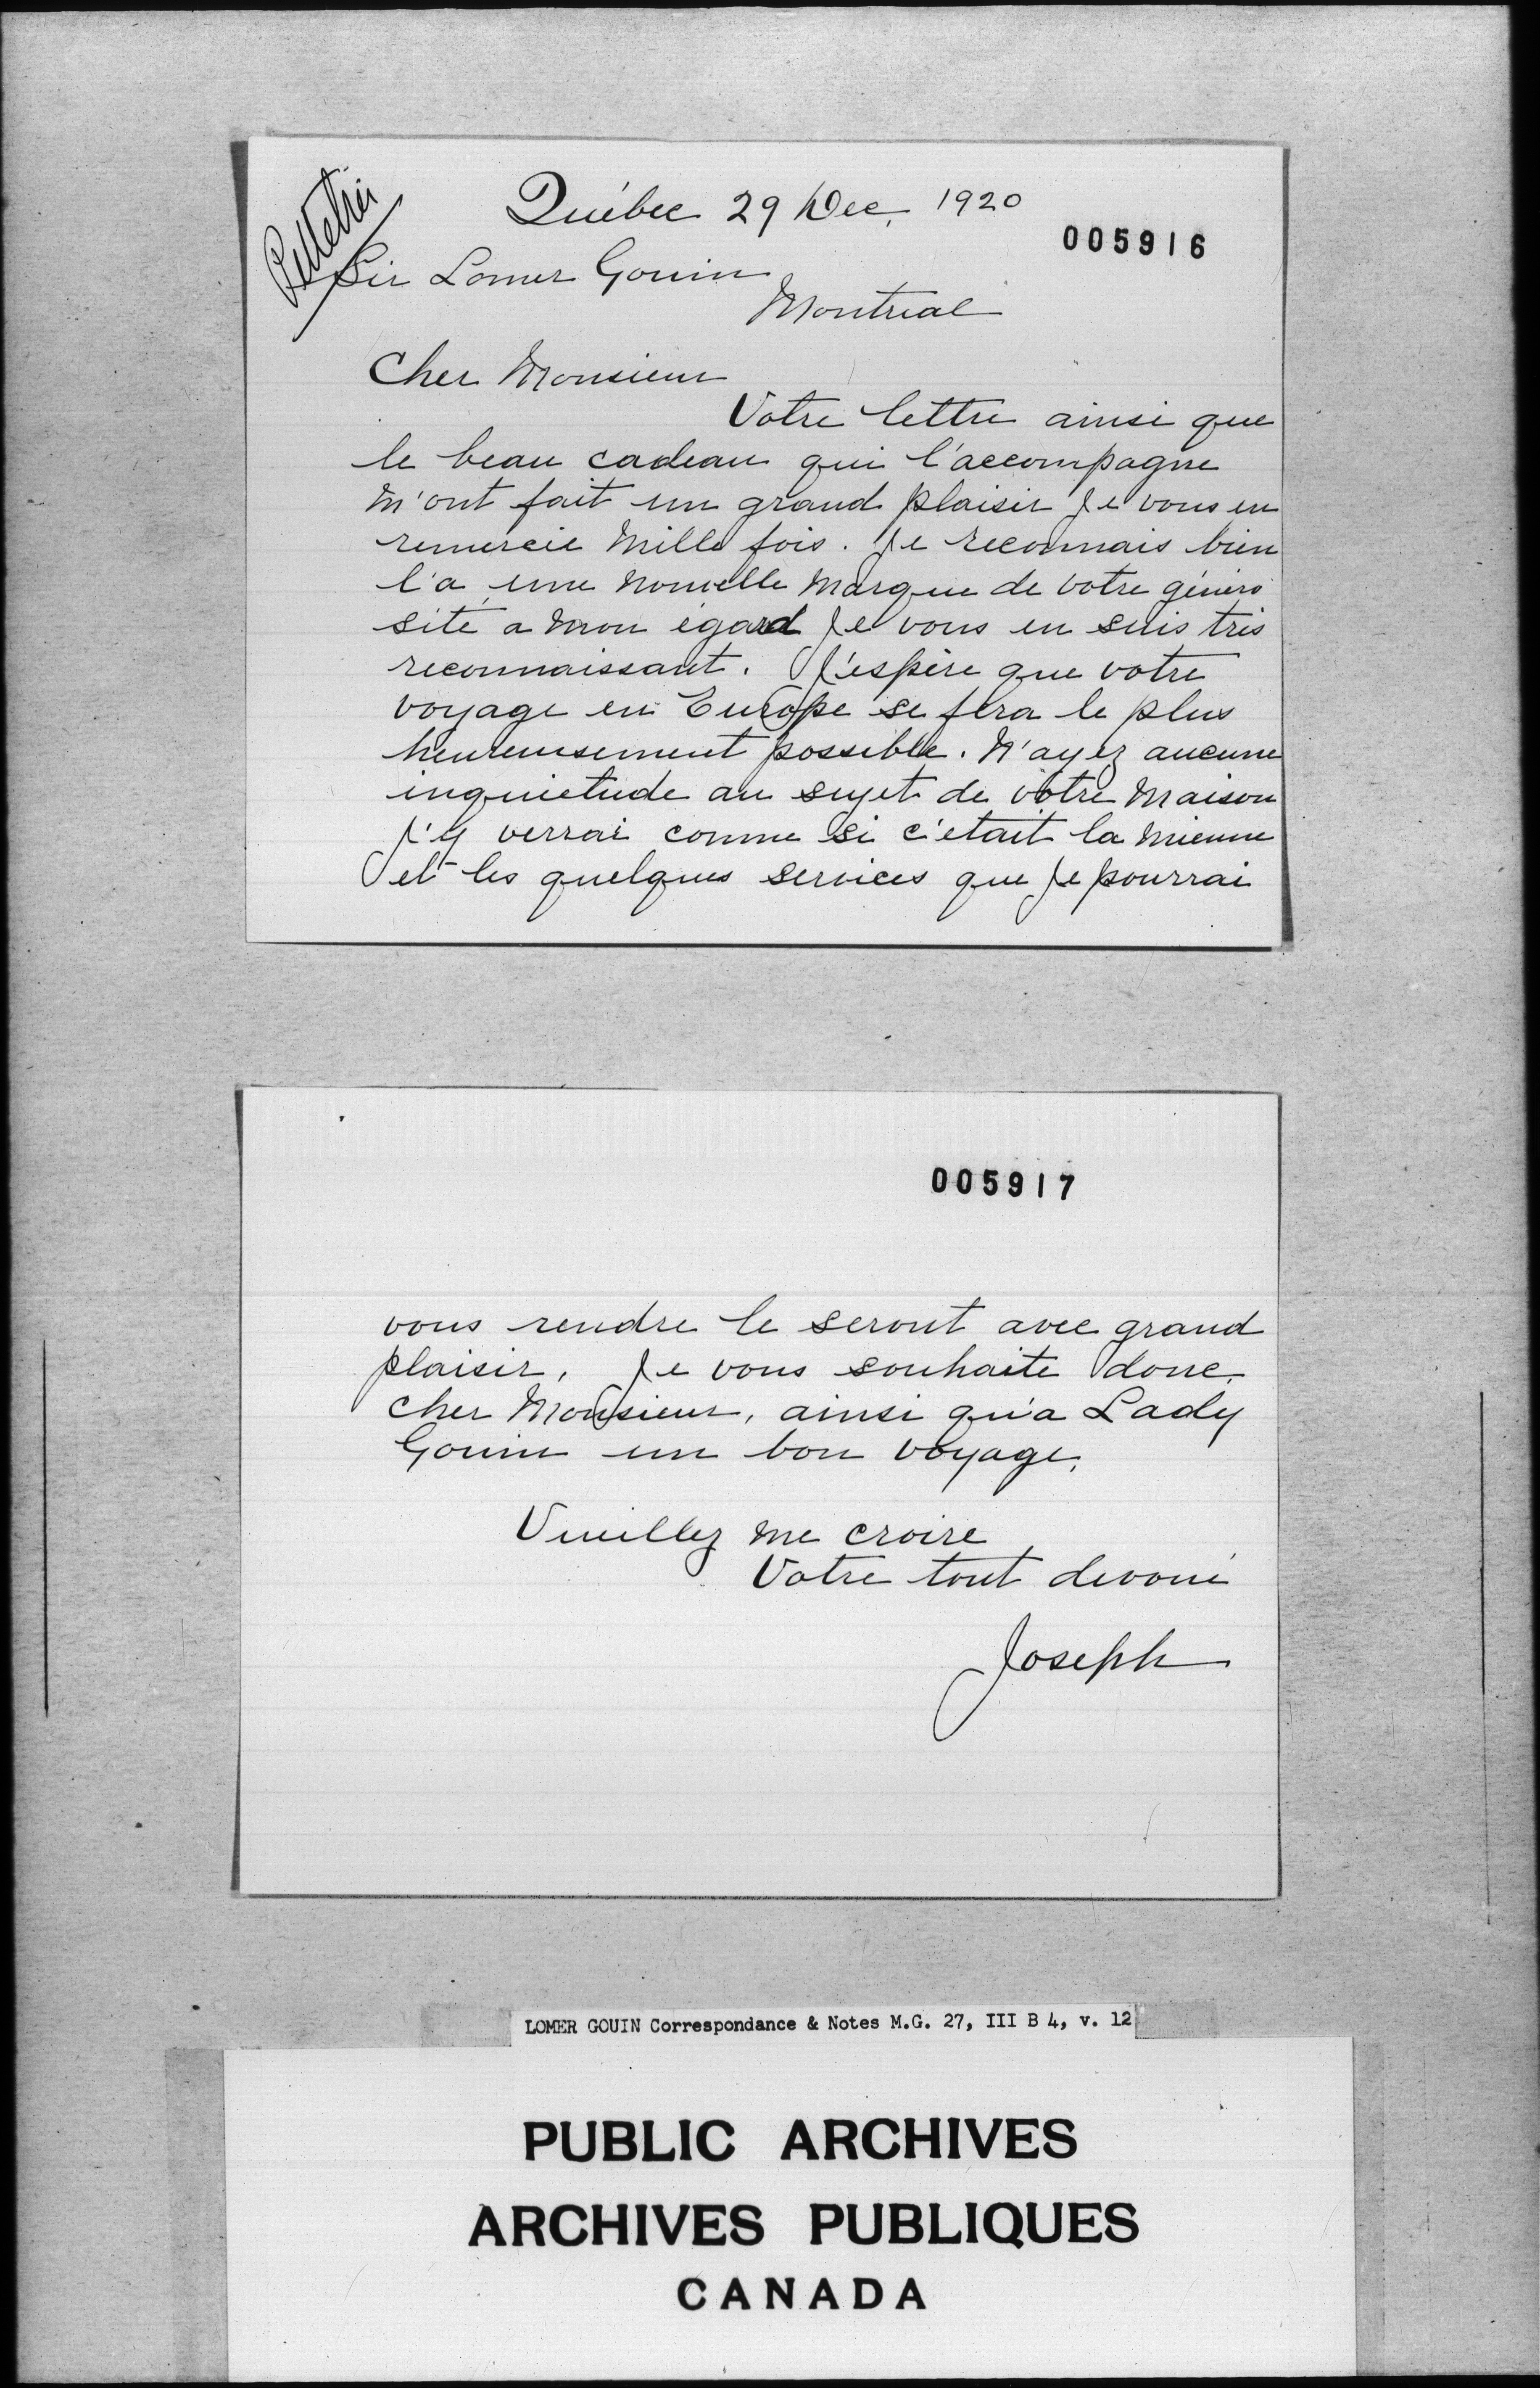 Pelletier
Québec 29 Dec. 1920
005916
Sir Lomer Gouin
Montreal
Cher Monsieur
Votre lettre ainsi que
le beau cadeau qui l'accompagne
m'ont fait un grand plaisir Je vous en
remercie mille fois. Je reconnais bien
l'a une nouvelle marque de votre généro
sité a mon égard Je vous en suis très
reconnaissant. J'espère que votre
voyage en Europe se fera le plus
heureusement possible. N'ayez aucune
inquietude au sujet de vôtre maison
J'y verrai comme si c'était la mienne
et les quelques services que je pourrai
005917
vous rendre le seront avec grand
plaisir, Je vous souhaite donc
cher Monsieur, ainsi qu'a Lady
Gouin un bon voyage,
Veuillez me croire
Votre tout devoué
Joseph
LOMER GOUIN Correspondance & Notes M.G. 27, III B 4, v. 12
PUBLIC ARCHIVES
ARCHIVES PUBLIQUES
CANADA